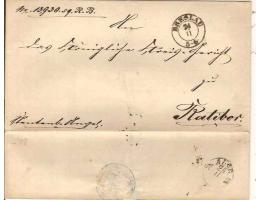 Nr. 13930. sq. R. B.
BRESLAU
24
11
An
das Königliche Kreis-Gericht
zu
Ratibor.